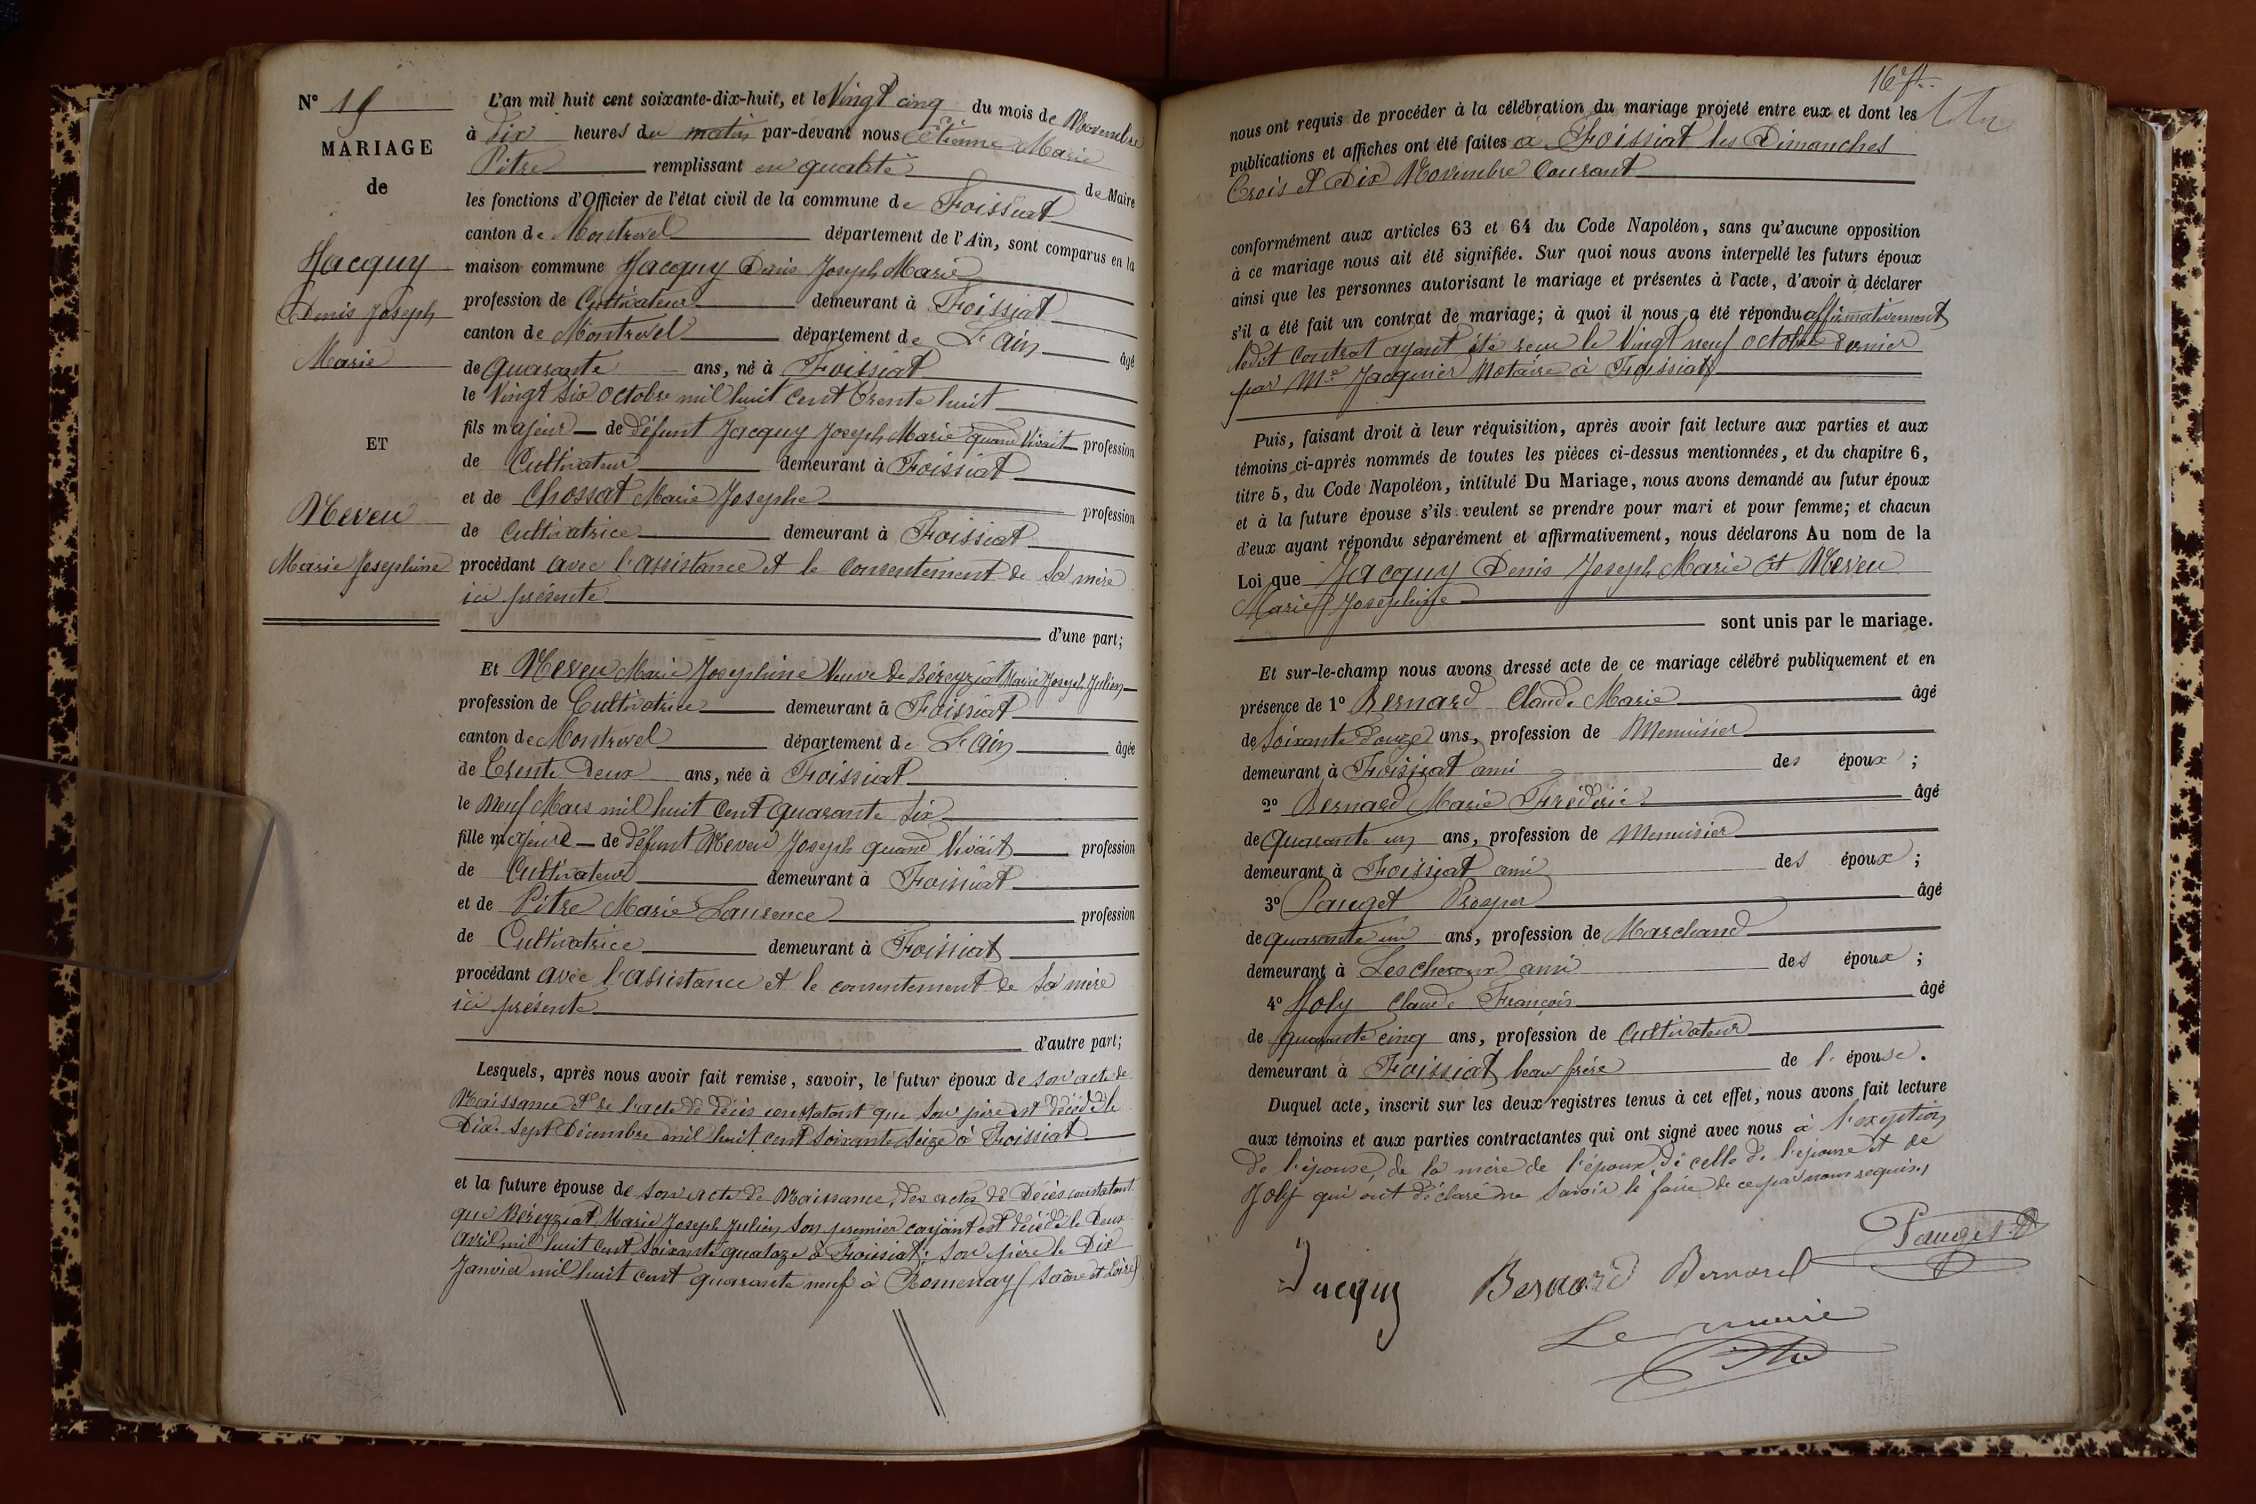 N°
MARIAGE
de
Jacquy
Denis Joseph
Marie
ET
Neveu
Marie Josephine
L'an mil huit cent soixante-dix-huit, et le Vingt cinq du mois de Novembre
à dix heures du matin par-devant nous Etienne Marie
Pitre remplissant en qualité de Maire
les fonctions d'Officier de l'état civil de la commune de Foissiat
canton de Montrevel département de l'Ain, sont comparus en la
maison commune Jacquy Denis Joseph Marie
profession de Cultivateur demeurant à Foissiat
canton de Montrevel département de L'Ain âgé
de quarante ans, né à Foissiat
le Vingt six octobre mil huit cent trente huit
fils majeur de défunt Jacquy Joseph Marie quand Vivait profession
de Cultivateur demeurant à Foissiat
et de Chossat Marie Josephe profession
de cultivatrice demeurant à Foissiat
procédant avec l'assistance et le consentement de sa mère
ici présente
d'une part;
Et Neveu Marie Josephine Veuve de Béreyziat Marie Joseph Julien
profession de Cultivatrice demeurant à Foissiat
canton de Montrevel département de L'Ain âgée
de trente deux ans, née à Foissiat
le Neuf Mars mil huit cent quarante six
fille majeure de défunt Neveu Joseph quand Vivait profession
de Cultivateur demeurant à Foissiat
et de Pitre Marie Laurence profession
de Cultivatrice demeurant à Foissiat
procédant avec l'assistance et le consentement de sa mère
ici présente
d'autre part;
Lesquels, après nous avoir fait remise, savoir, le futur époux de son acte de
Naissance et de l'acte de décès constatant que son père est décédé le
Dix-sept Décembre mil huit cent soixante seize à Foissiat
et la future épouse de son acte de Naissance, des actes de Décès constatant
que Béreyziat Marie Joseph Julien son premier conjoint est décédé le Deux
avril mil huit cent soixante quatoze à Foissiat; son père le Dix
Janvier mil huit cent quarante neuf à Romenay (Saône et Loire)
nous ont requis de procéder à la célébration du mariage projeté entre eux et dont les
publications et affiches ont été faites a Foissiat les Dimanches
Trois et Dix Novembre Courant
conformément aux articles 63 et 64 du Code Napoléon, sans qu'aucune opposition
à ce mariage nous ait été signifiée. Sur quoi nous avons interpellé les futurs époux
ainsi que les personnes autorisant le mariage et présentes à l'acte, d'avoir à déclarer
s'il a été fait un contrat de mariage; à quoi il nous a été répondu affirmativement
ledit contrat ayant été reçu le Vingt neuf octobre dernier
par Me Jacquier Notaire à Foissiat
Puis, faisant droit à leur réquisition, après avoir fait lecture aux parties et aux
témoins ci-après nommés de toutes les pièces ci-dessus mentionnées, et du chapitre 6,
titre 5, du Code Napoléon, intitulé Du Mariage, nous avons demandé au futur époux
et à la future épouse s'ils veulent se prendre pour mari et pour femme; et chacun
d'eux ayant répondu séparément et affirmativement, nous déclarons Au nom de la
Loi que Jacquy Denis Joseph Marie Et Neveu
Marie Josephine
sont unis par le mariage.
Et sur-le-champ nous avons dressé acte de ce mariage célébré publiquement et en
présence de 1° Bernard Claude Marie âgé
de soixante douze ans, profession de Menuisier
demeurant à Foissiat ami des époux ;
2° Bernard Marie Fréderic âgé
de quarante un ans, profession de Menuisier
demeurant à Foissiat ami des époux ;
3° Pauget Prosper âgé
de quarante un ans, profession de Marchand
demeurant à Lescheroux ami des époux ;
4° Joly Claude François âgé
de quarante cinq ans, profession de Cultivateur
demeurant à Foissiat beau frère de l'épouse.
Duquel acte, inscrit sur les deux registres tenus à cet effet, nous avons fait lecture
aux témoins et aux parties contractantes qui ont signé avec nous à l'exeption
de l'épouse, de la mère de l'époux, de celle de l'épouse et de
Joly qui ont déclaré ne savoir le faire de ce par nous requis
Jacquy Bernard Bernard Pauget P
Le maire
Pitre